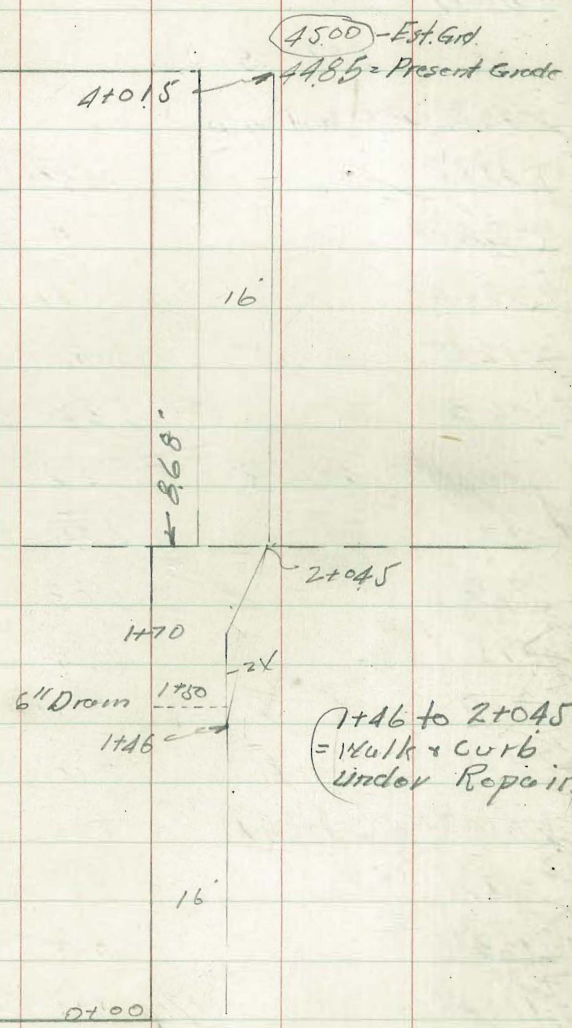 4500 - Est. Grd.
4485 = Present Grade
4+015
16'
8.68'
2+045
1+70
2X
6" Drain 1+50
1+46
1+46 to 2+045
= Walk & Curb
under Repair
16'
0+00